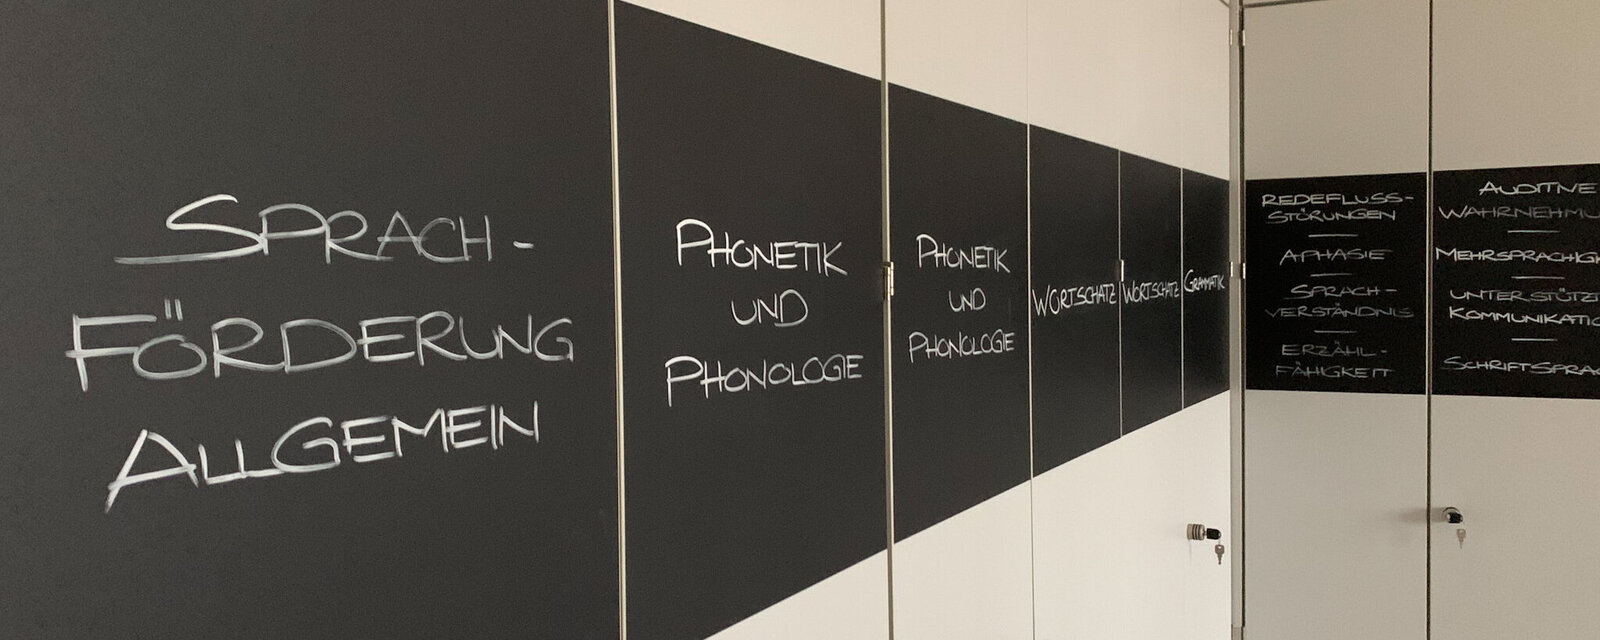 SPRACH-
FÖRDERUNG
ALLGEMEIN
PHONETIK
UND
PHONOLOGIE
PHONETIK
UND
PHONOLOGIE
WORTSCHATZ
WORTSCHATZ
GRAMMATIK
REDEFLUSS-
STÖRUNGEN
APHASIE
SPRACH-
VERSTÄNDNIS
ERZÄHL-
FÄHIGKEIT
AUDITIVE
WAHRNEHMU
MEHRSPRACHIGK
UNTERSTÜTZT
KOMMUNIKATIO
SCHRIFTSPRAC